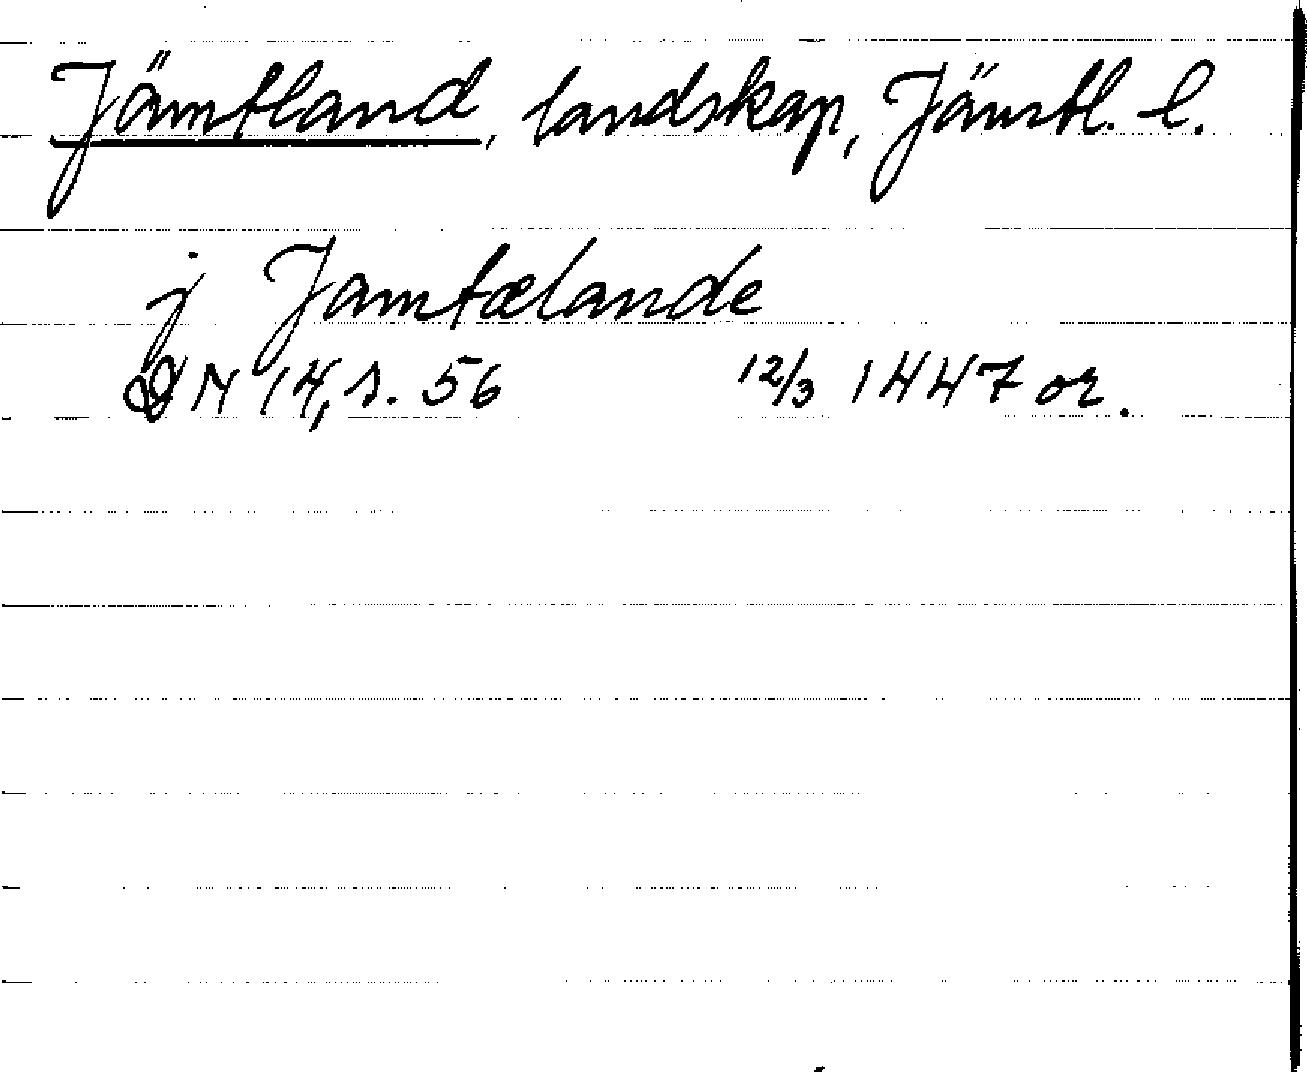 Jämtland, landskap, Jämtl. l.
j Jamtælande
DN 14, s. 56 12/3 1447 or.